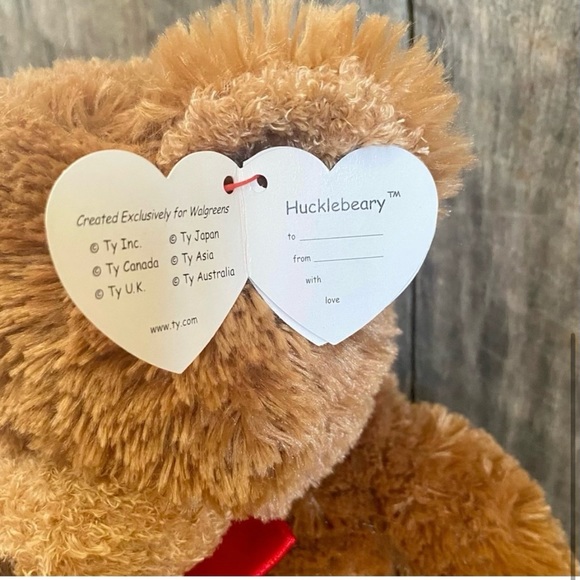 Created Exclusively for Walgreens
© Ty Inc. © Ty Japan
© Ty Canada © Ty Asia
© Ty U.K. © Ty Australia
www.ty.com
Hucklebeary™
to ____________
from ____________
with
love